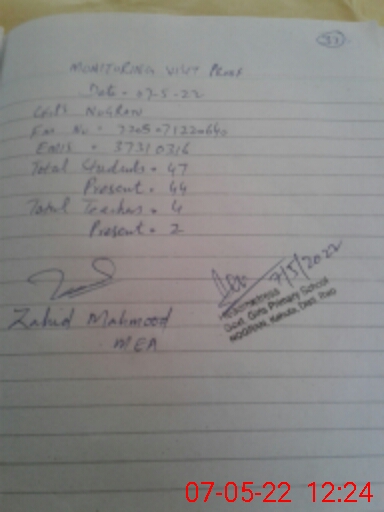 37
MONITORING VISIT PROOF
Date = 07-5-22
GGPS NOGRAN
EMIS = 37310316
Total Students = 47
Present = 44
Total Teachers = 4
Present = 2
7/5/2022
Headmistress
Govt. Girls Primary School
NOGRAN, Kahuta, Distt. Rwp
Zahid Mahmood
MEA
07-05-22 12:24